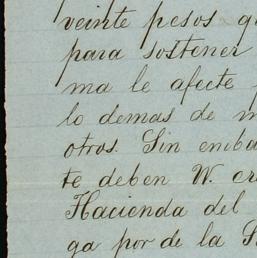 veinte pesos q
para sostener
ma le afecte
lo demas de m
otros. Sin emba
te deben W. cr
Hacienda del
ga por de la S